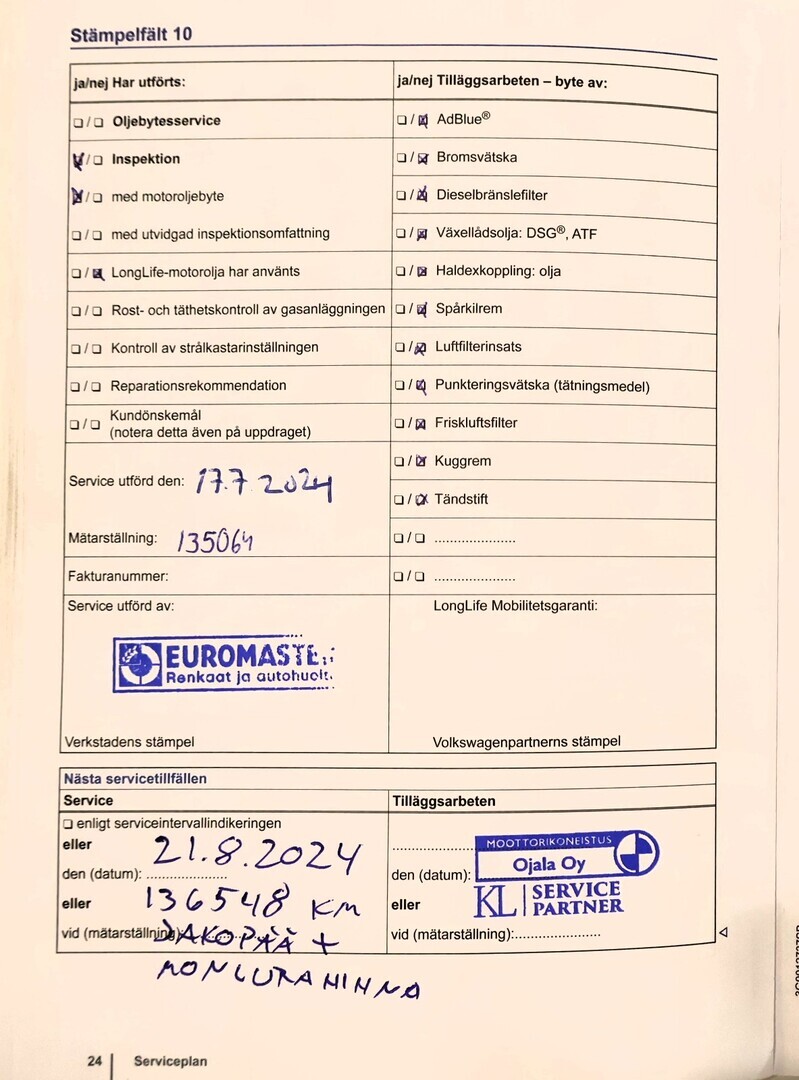 Stämpelfält 10
ja/nej Har utförts:
☐/☐ Oljebytesservice
☒/☐ Inspektion
☒/☐ med motoroljebyte
☐/☐ med utvidgad inspektionsomfattning
☐/☒ LongLife-motorolja har använts
☐/☐ Rost- och täthetskontroll av gasanläggningen
☐/☐ Kontroll av strålkastarinställningen
☐/☐ Reparationsrekommendation
☐/☐ Kundönskemål
(notera detta även på uppdraget)
Service utförd den: 17.7.2024
Mätarställning: 135064
Fakturanummer:
Service utförd av:
EUROMASTE
Renkaat ja autohuolt.
Verkstadens stämpel
ja/nej Tilläggsarbeten – byte av:
☐/☒ AdBlue®
☐/☒ Bromsvätska
☐/☒ Dieselbränslefilter
☐/☒ Växellådsolja: DSG®, ATF
☐/☒ Haldexkoppling: olja
☐/☒ Spårkilrem
☐/☒ Luftfilterinsats
☐/☒ Punkteringsvätska (tätningsmedel)
☐/☒ Friskluftsfilter
☐/☒ Kuggrem
☐/☒ Tändstift
☐/☐ .....................
☐/☐ .....................
LongLife Mobilitetsgaranti:
Volkswagenpartnerns stämpel
Nästa servicetillfällen
Service
☐ enligt serviceintervallindikeringen
eller
21.8.2024
den (datum): .....................
eller 136548 KM
vid (mätarställning): JAKOPÄÄ +
MONIURAHIHNA
Tilläggsarbeten
.....................
MOOTTORIKONEISTUS
Ojala Oy
den (datum):
KL SERVICE
PARTNER
eller
vid (mätarställning):.....................
24 Serviceplan